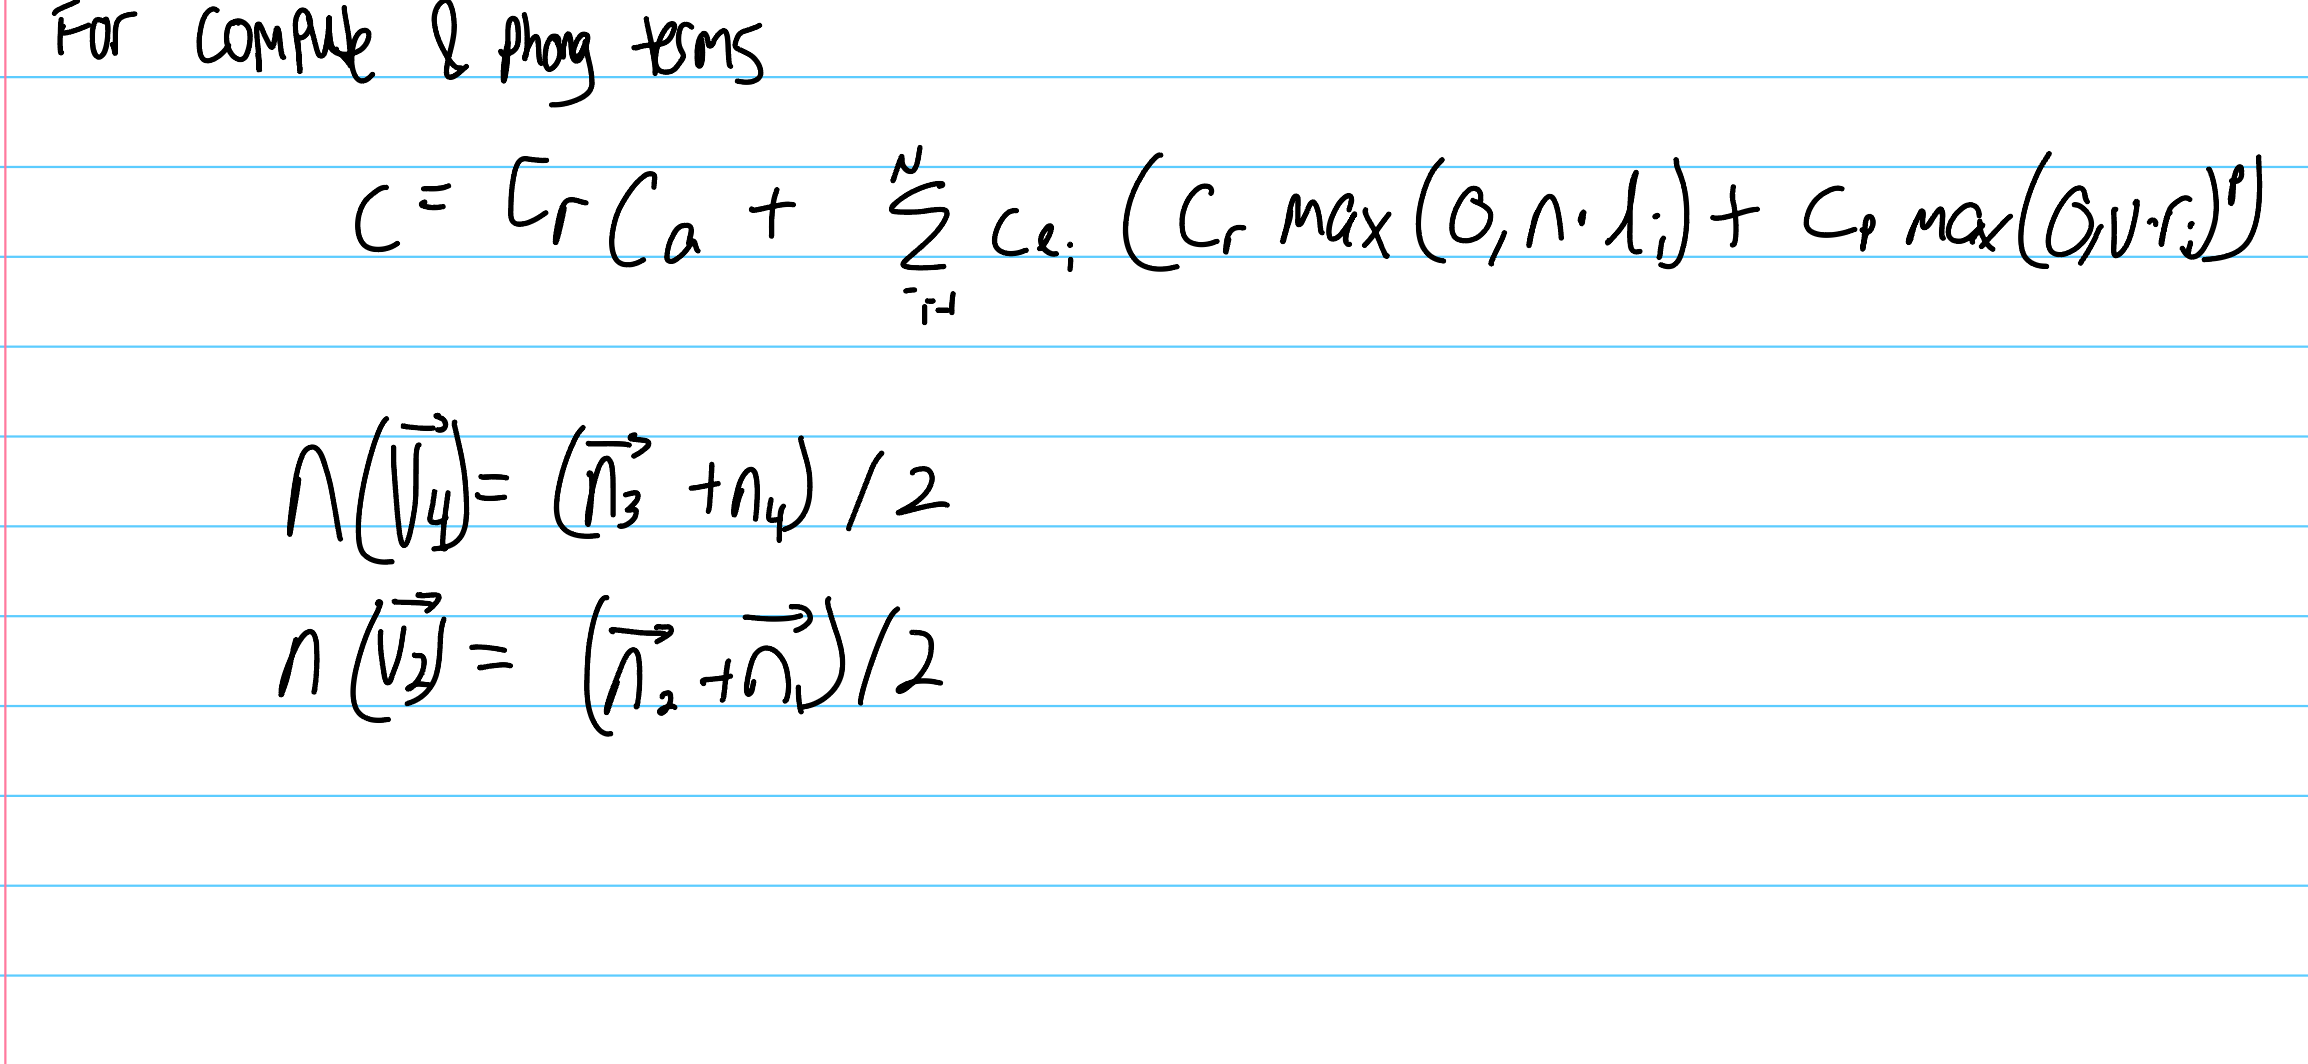 For compute & phong terms
C = Cr Ca + N∑i=1 Cei (Cr max(0, n·li) + Cp max(0, v·ri)^p)
n(v⃗4) = (n⃗3 + n4) / 2
n(v⃗2) = (n⃗2 + n⃗1) / 2